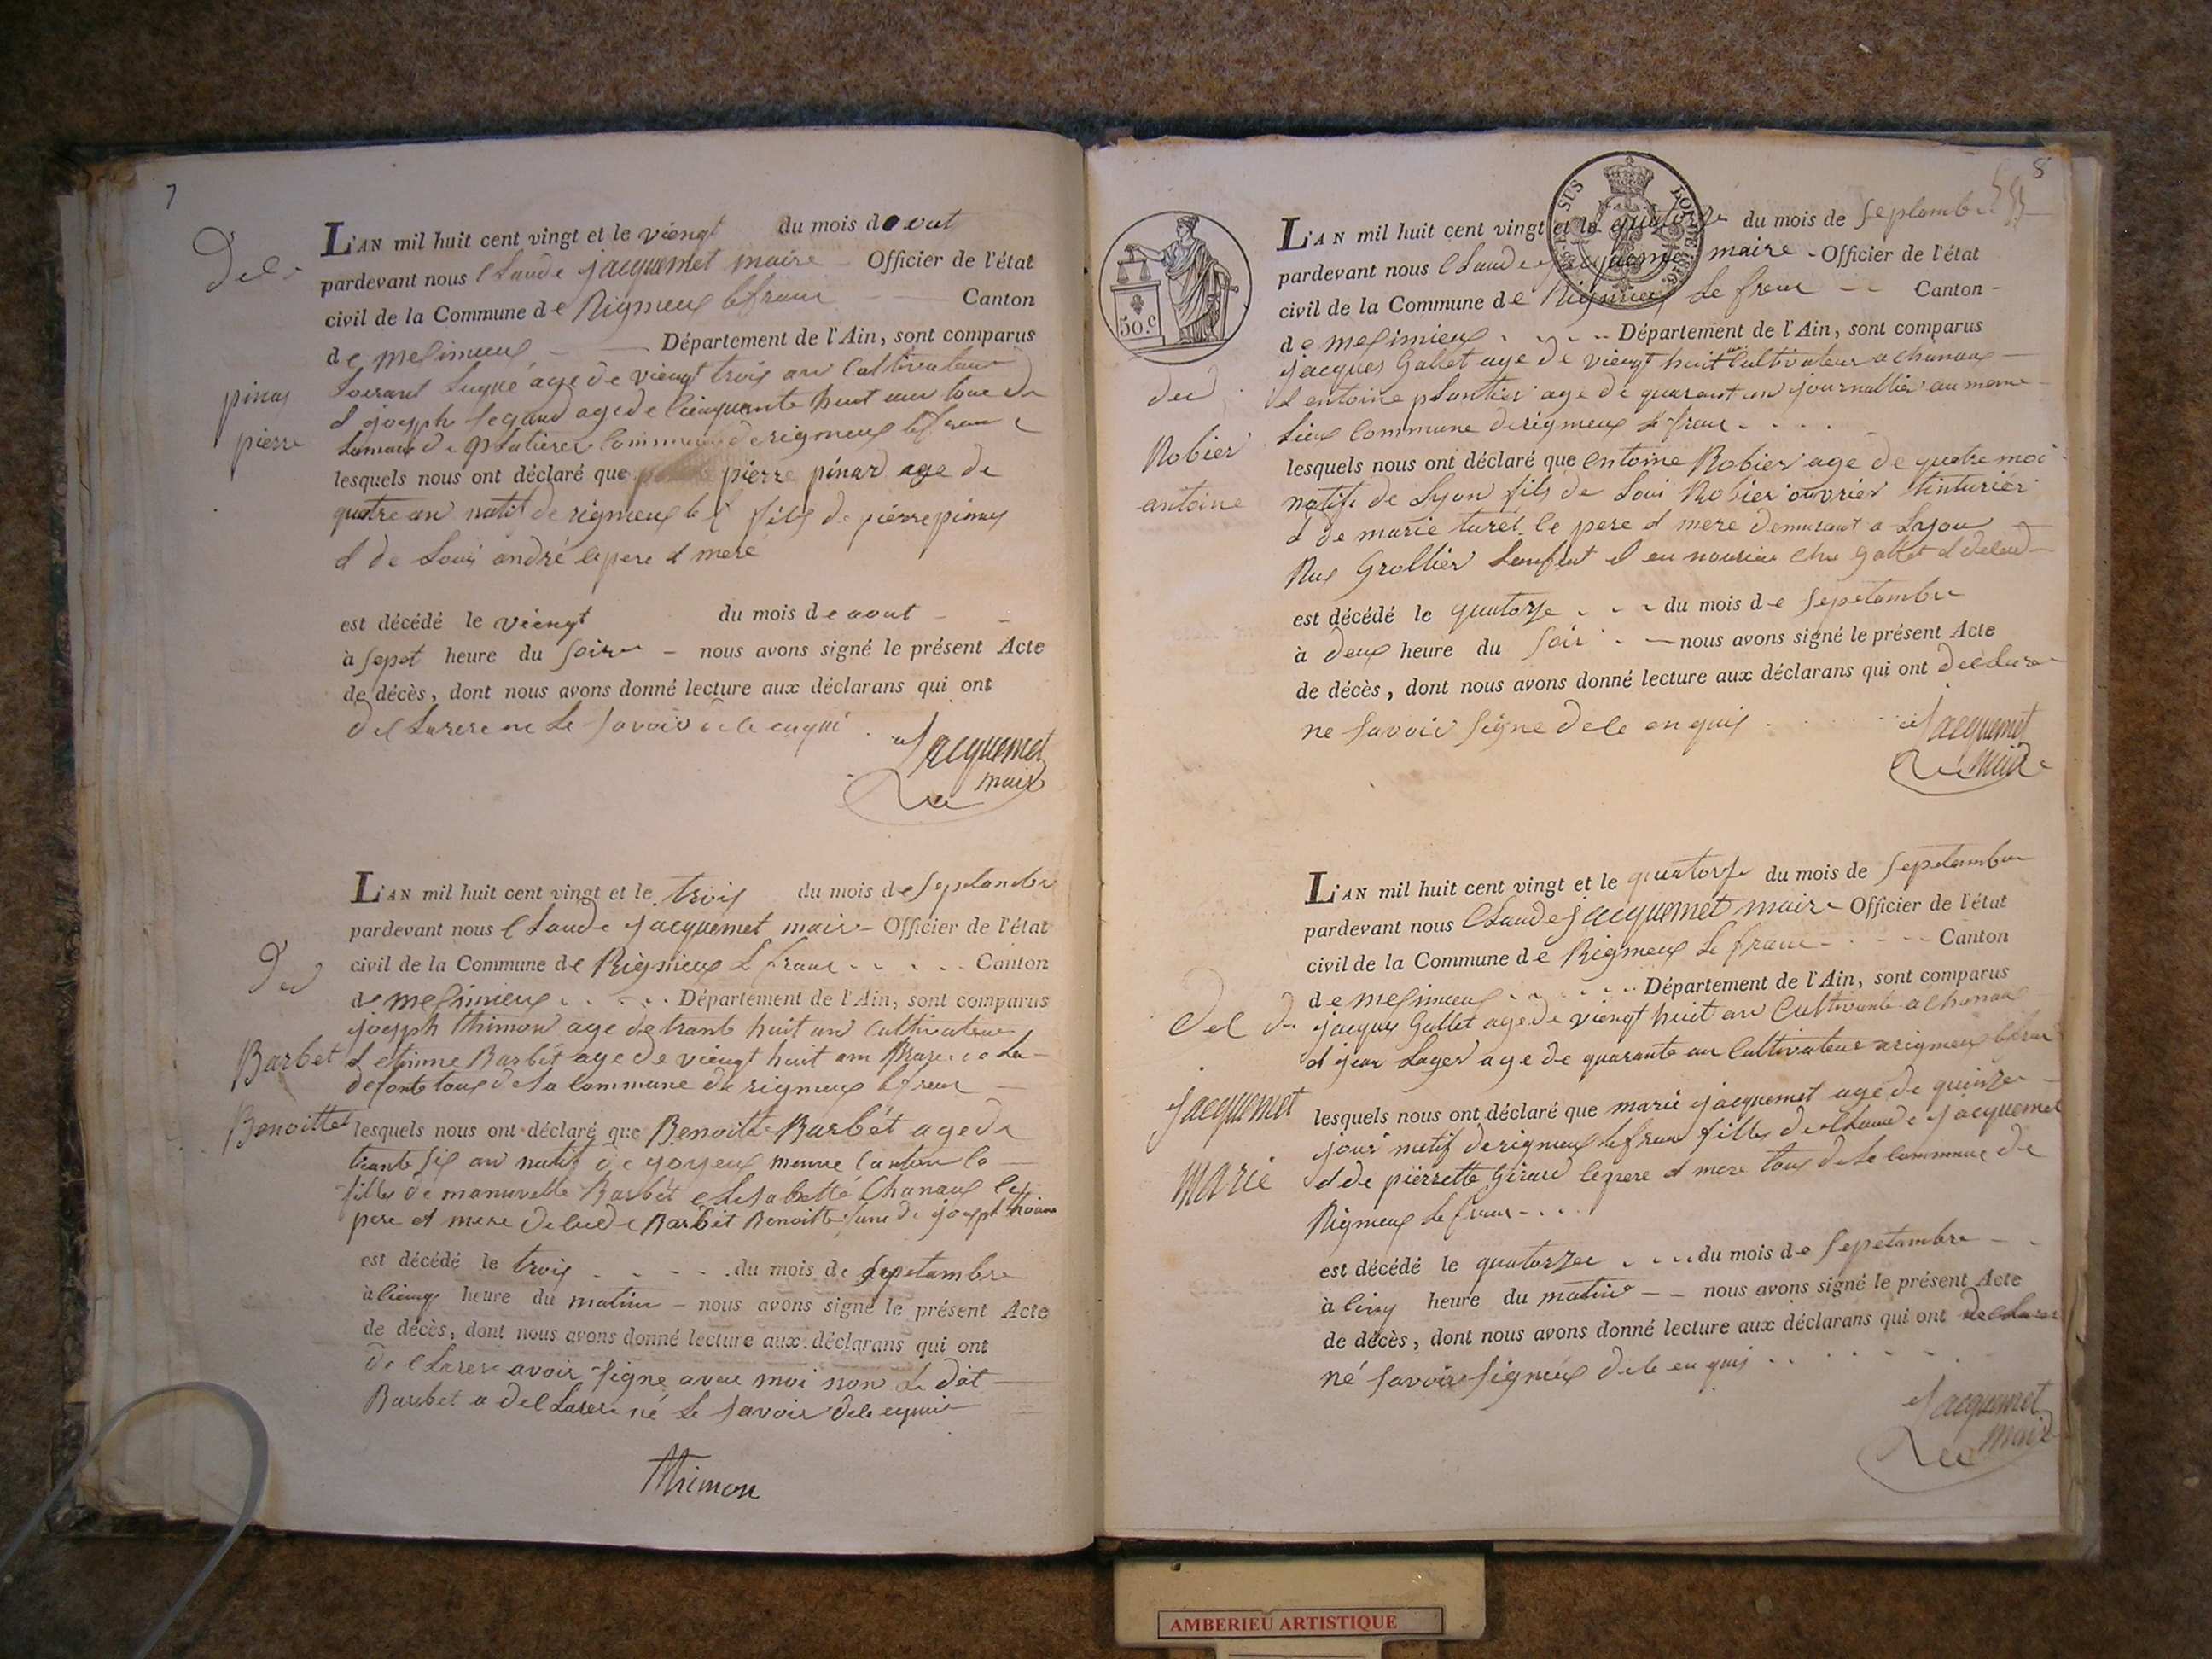 7
L'AN mil huit cent vingt et le viengt du mois d out
pardevant nous Claude jacquemet maire Officier de l'état
civil de la Commune de Rigneux le franc Canton
de meximieux Département de l'Ain, sont comparus
age de viengt trois an Cultivateur
d joseph age de cienquante huit
Commune de rigneux le franc
pinas
pierre
lesquels nous ont déclaré que pierre pinard age de
quatre an natif de rigneux le f fils de pierre pinas
d de Loui andré le pere d mere
est décédé le viengt du mois de aout
à sepet heure du soire nous avons signé le présent Acte
de décès, dont nous avons donné lecture aux déclarans qui ont
ne le savoir
Jacquemet
maire
L'AN mil huit cent vingt et le trois du mois de septambre
pardevant nous Claude jacquemet maire Officier de l'état
civil de la Commune de Rignieux le franc Canton
de meximieux Département de l'Ain, sont comparus
joseph thimon age de trante huit an cultivateur
Barbet
d etinne Barbet age de viengt huit am
tous de la commune de rigneux le franc
Benoitte
lesquels nous ont déclaré que Benoitte Barbet age de
trante six an natif de
filles de manuvelle Barbet elisabette Chanaux les
pere et mere Barbet Benoitte fame de joseph thimon
est décédé le trois du mois de sepetambre
à cienq heure du matin nous avons signé le présent Acte
de décès, dont nous avons donné lecture aux déclarans qui ont
avoir signe avec moi non le dit
Barbet a né le savoir
Thimon
8
50.c
L'AN mil huit cent vingt et le quatorze du mois de septambre
pardevant nous Claude jacquemet maire Officier de l'état
civil de la Commune de Rigneux le franc Canton
de meximieux Département de l'Ain, sont comparus
jacques Gallet age de viengt huit an Cultivateur a chanaux
d entoine plantier age de quarant un journallier au meme
lieux Commune de rigneux le franc
Robier
antoine
lesquels nous ont déclaré que entoine Robier age de quatre moi
natife de Lyon fils de Loui Robier ouvrier tinturier
d de marie turel le pere d mere demurant a Lyon
Rux Grollier l'enfent
est décédé le quatorze du mois de sepetambre
à deux heure du soir nous avons signé le présent Acte
de décès, dont nous avons donné lecture aux déclarans qui ont declarer
ne savoir signe de le enquis
Jacquemet
maire
L'AN mil huit cent vingt et le quatorze du mois de septambre
pardevant nous Claude jacquemet maire Officier de l'état
civil de la Commune de Rigneux le franc Canton
de meximieux Département de l'Ain, sont comparus
jacques Gallet age de viengt huit an Cultivante a chanaux
d jean Lager age de quarante an Cultivateur a rigneux le franc
Jacquemet
marie
lesquels nous ont déclaré que marie jacquemet age de quinze
jour natif de rigneux le franc filles de Claude jacquemet
d de pierrette Girard le pere d mere tous de la commune de
Rigneux le franc
est décédé le quatorze du mois de sepetambre
à cinq heure du matin nous avons signé le présent Acte
de décès, dont nous avons donné lecture aux déclarans qui ont declarer
né savoir signeux de le enquis
Jacquemet
maire
AMBERIEU ARTISTIQUE